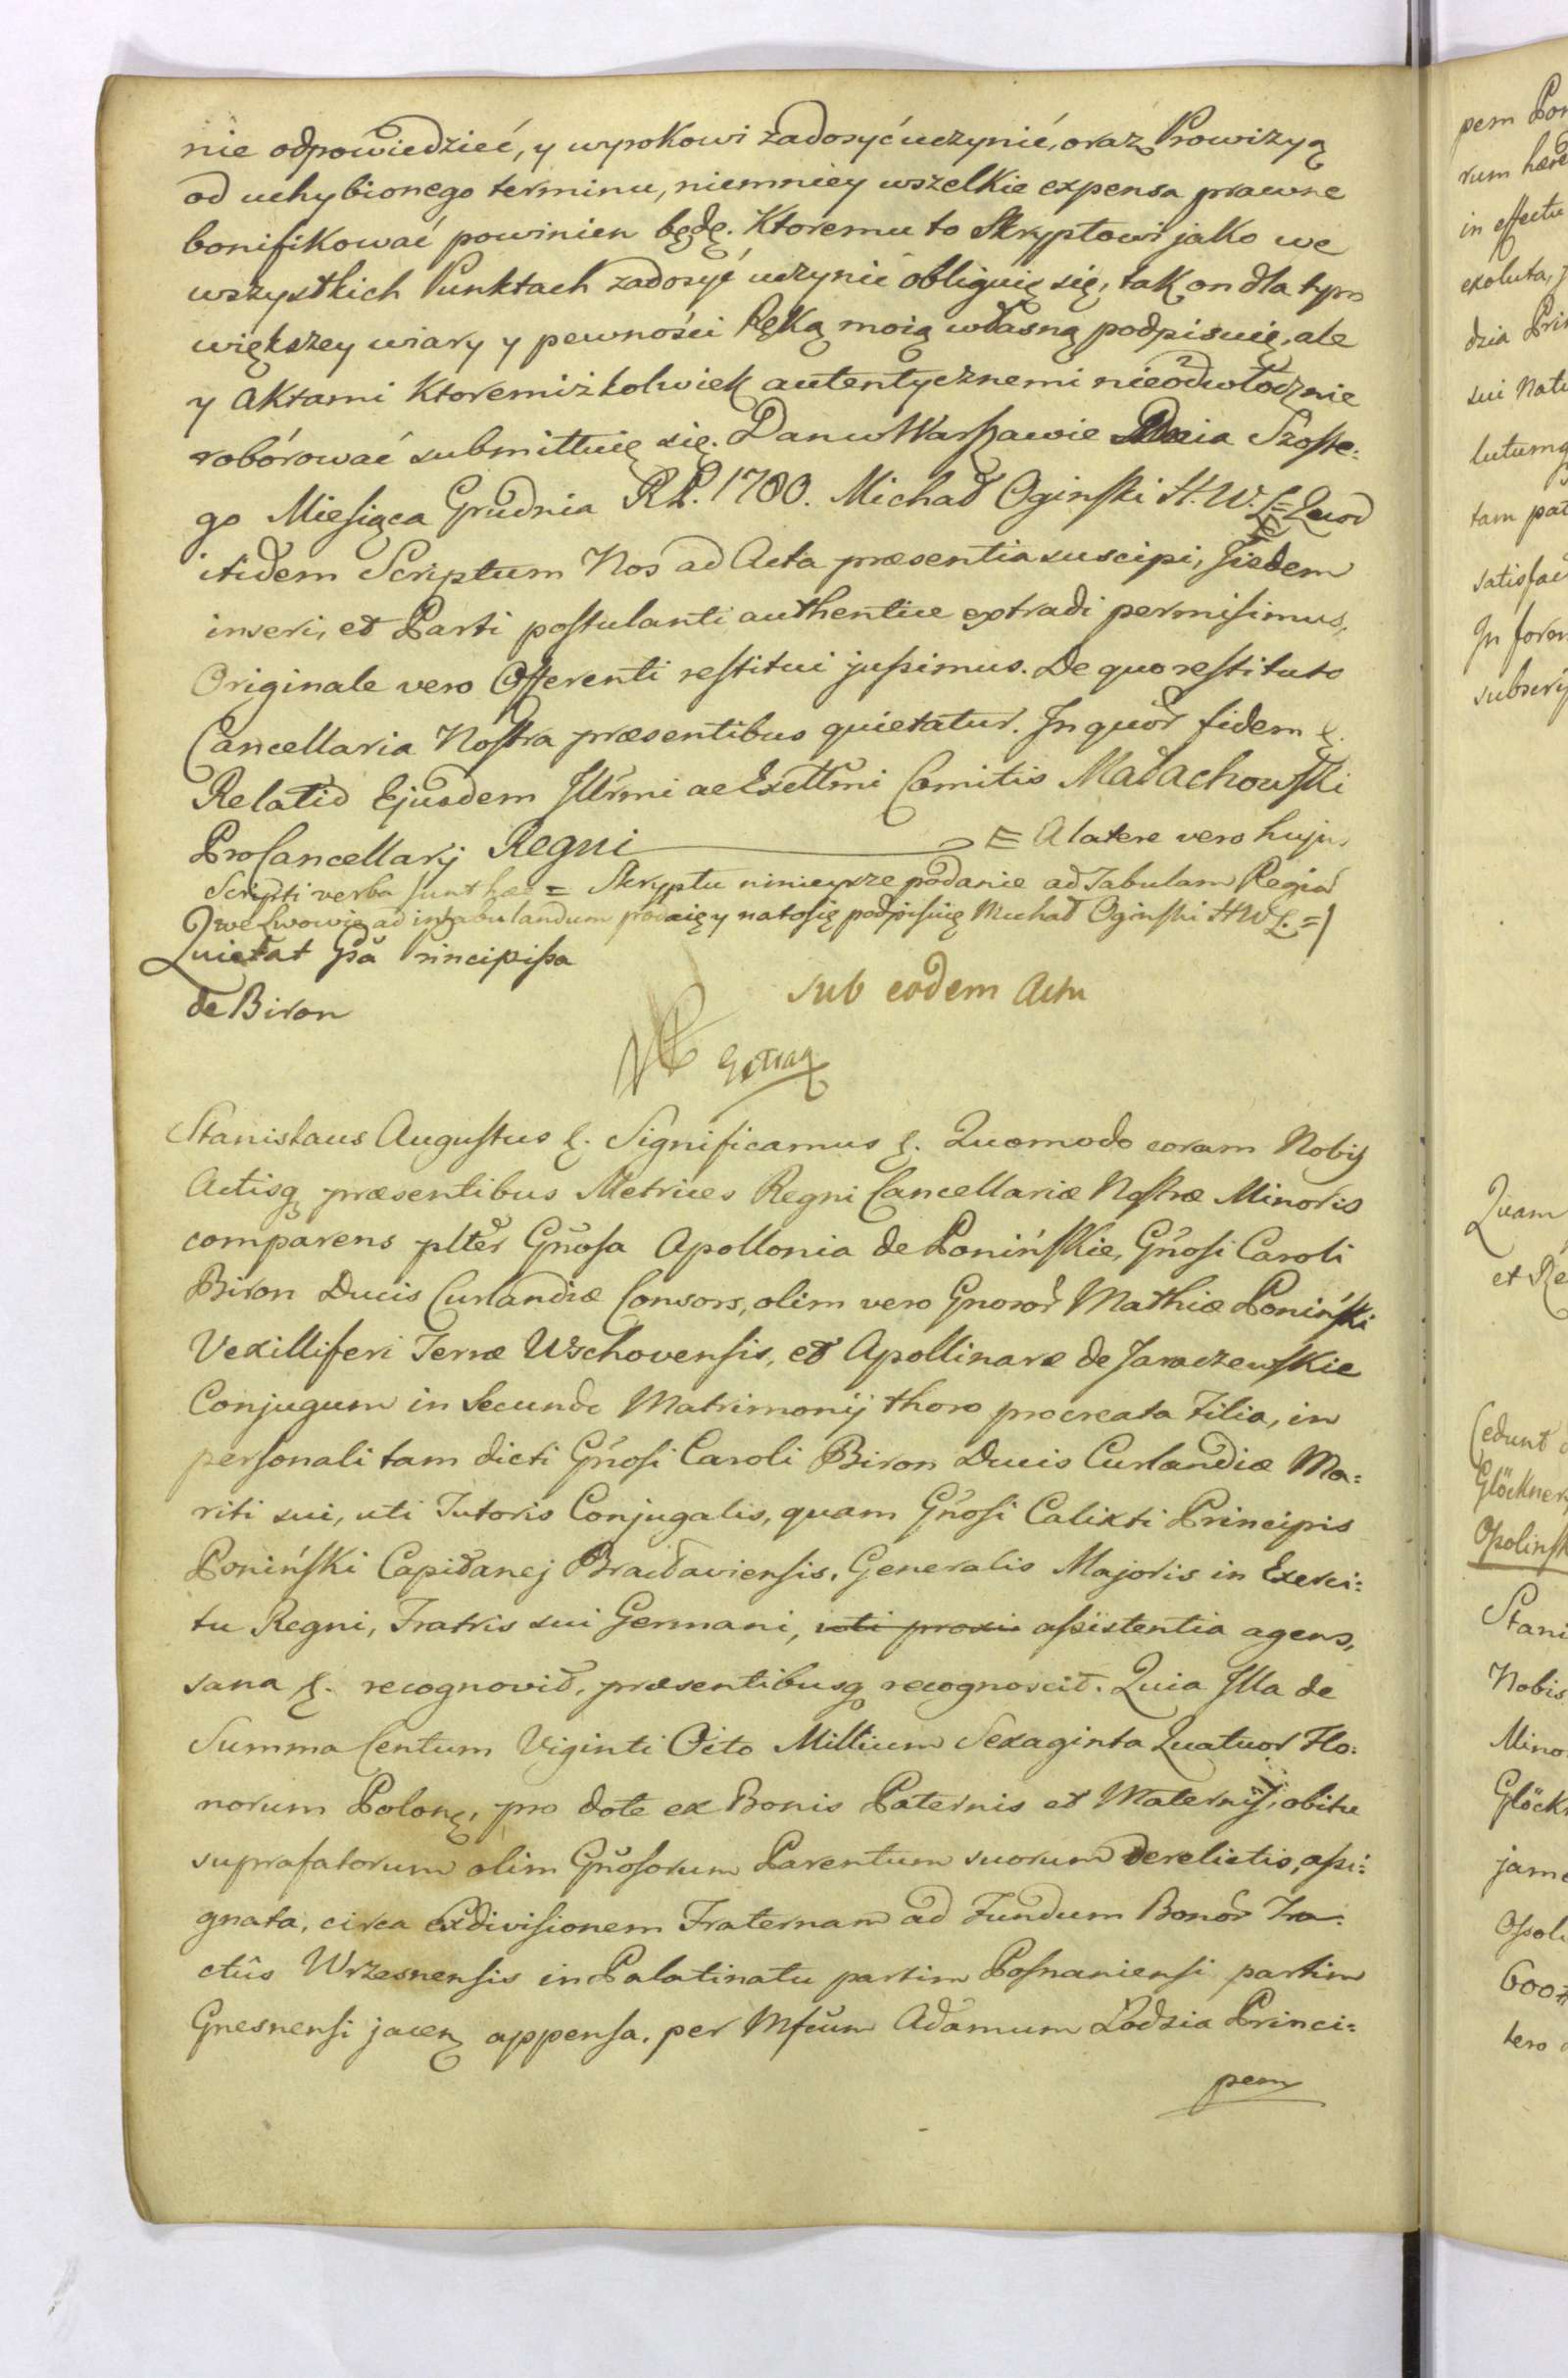 nie odpowiedzieć, y wyrokowi zadosyć uczynić, oraz Prowizyą
od uchybionego terminu, niemniey wszelkie expensa prawne
bonifikować powinien będę. Ktoremu to Skryptowi jako we
wszystkich Punktach zadosyć uczynić obliguię się, tak on dla tym
większey wiary y pewności Ręką moią własną podpisuię, ale
y Aktami Ktoremiżkolwiek autentycznemi nieodwłocznie
roborować submittuię się. Dan w Warszawie Dnia Szoste=
go Miesiąca Grudnia R.P. 1780. Michał Oginski H.W.L = Quod
itidem Scriptum Nos ad Acta præsentia suscipi, Iisdem
inseri, et Parti postulanti authentice extradi permisimus,
Originale vero Offerenti restitui jussimus. De quo restituto
Cancellaria Nostra præsentibus quietatur. In quor̃ fidem &.
Relatio Ejusdem Illr̃mi ac Excell̃mi Comitis Małachowski
ProCancellarij Regni = A latere vero hujus
Scripti verba sunt hæc = Skryptu ninieysze podanie ad Tabulam Regiã
we Lwowie ad intabulandum podaię y na to się podpisuię Michał Oginski HWL. =)
Quietat Gsã Principissa
de Biron
sub eodem Actu
Stanislaus Augustus &. Significamus &. Quomodo coram Nobis
Actisq. præsentibus Metrices Regni Cancellariæ Nostræ Minoris
comparens pltẽr Gñosa Apollonia de Ponińskie, Gñosi Caroli
Biron Ducis Curlandiæ Consors, olim vero Gnosor̃ Mathiæ Poniński
Vexilliferi Terræ Wschovensis, et Apollinaræ de Jaraczewskie
Conjugum in Secundo Matrimonij thoro procreata Filia, in
personali tam dicti Gñosi Caroli Biron Ducis Curlandiæ Ma=
riti sui, uti Tutoris Conjugalis, quam Gñosi Calixti Principis
Poniński Capitanej Bracłaviensis, Generalis Majoris in Exerci=
tu Regni, Fratris sui Germani, assistentia agens,
sana &. recognovit, præsentibusq. recognoscit. Quia Illa de
Summa Centum Viginti Octo Millium Sexaginta Quatuor Flo=
norum Polon., pro dote ex Bonis Paternis et Maternis, obitu
suprafatorum olim Gñosorum Parentum suorum derelictis, assi=
gnata, circa exdivisionem Fraternam ad Fundum Bonor̃ Tra=
ctûs Wrzesnensis in Palatinatu partim Posnaniensi partim
Gnesnensi jacen. appensa, per Mfcũm Adamum Łodzia Princi=
pem
pem Pon
in effectu
exoluta,
sui Natu
tam pat
satisfac
In form
subscrip
Quam
et Re
Cedunt
Glöckner
Stani
Nobis
Mino
Glöck